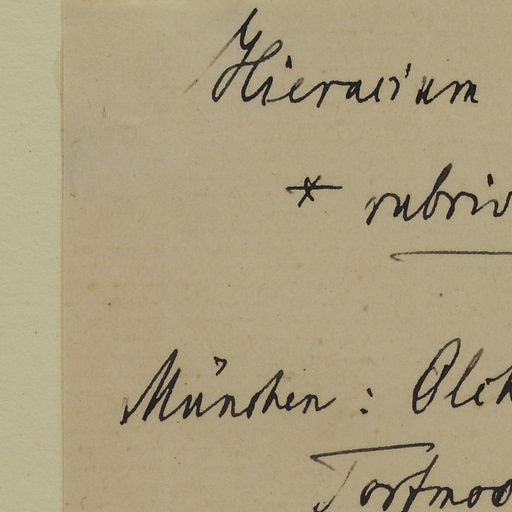 Hieracium
* rubriv
München: Olch
Torfmoo